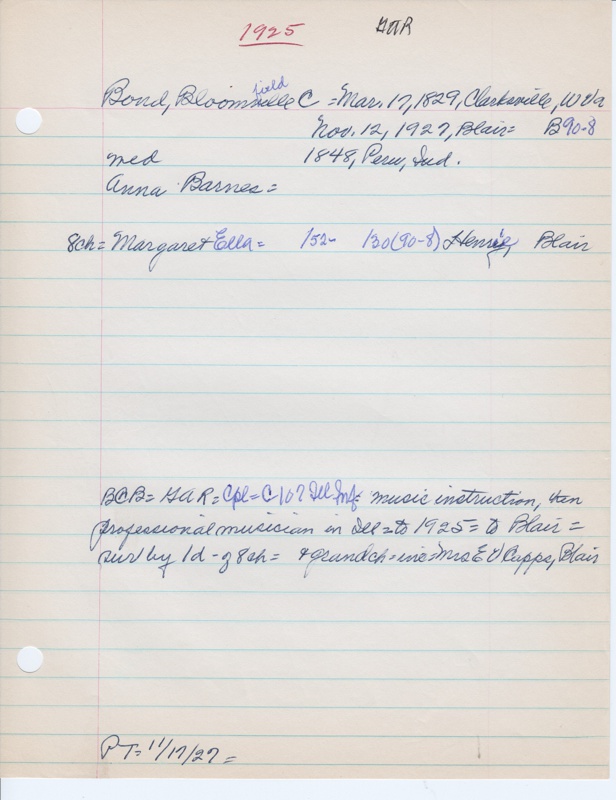 1925 GAR
Bond, Bloomville field C = Mar. 17, 1829, Clarksville, W Va
Nov. 12, 1927, Blair = B90-8
med 1848, Peru, Ind.
Anna Barnes =
8ch = Margaret Ella = 152- 130(90-8) Blair
BCB = GAR = Cpl = C-107 Ill Inf = music instruction,
professional musician in Ill = to 1925 = to Blair =
sur by 1d - of 8ch = + grandch = inc = Mrs E V Cupps, Blair
PT = 11/17/27 =